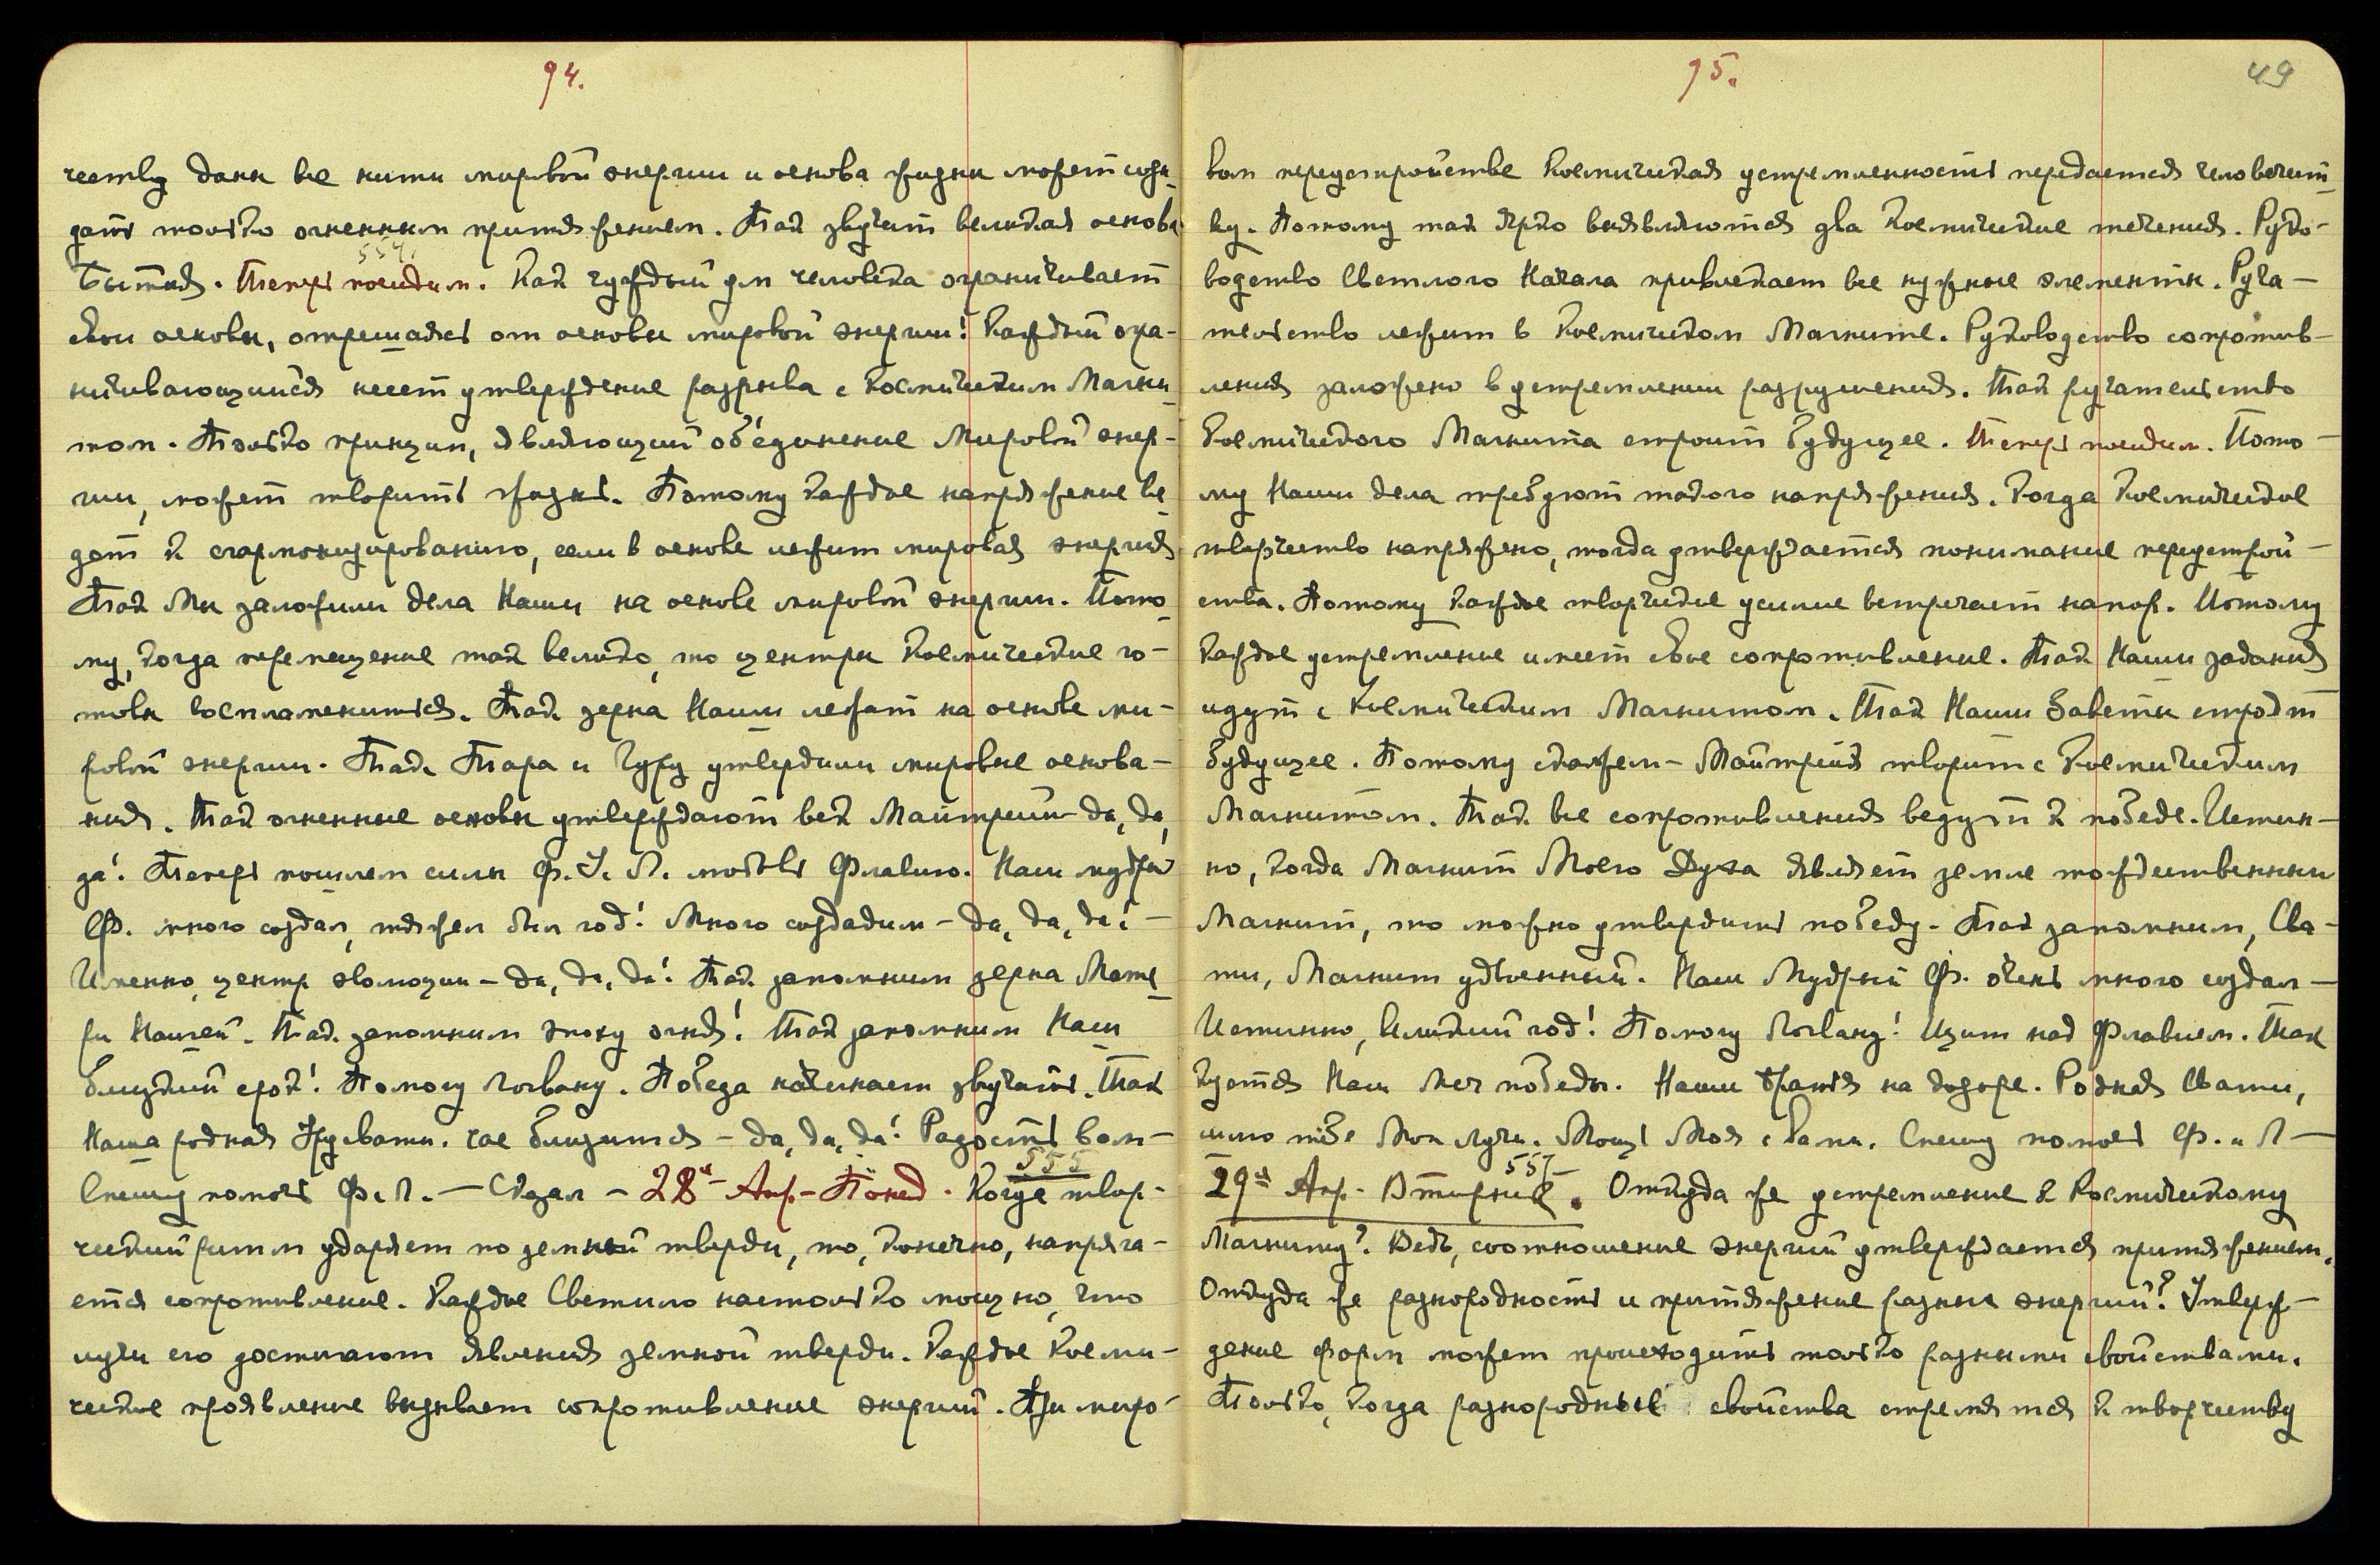 94.
честву даны все нити мировой энергии и основа жизни может созн-
дать только огненным притяжением. Так звучит великая основа
554.
Бытия. Теперь последим. Как чуждый ум человека ограничивает
свои основы, отрешаясь от основы мировой энергии! Каждый огра-
ничивающийся несет утверждение разрыва с Космическим Магни-
том. Только принцип, являющий объединение Мировой энер-
гии, может творить жизнь. Потому каждое напряжение ве-
дет к сгармонизированию, если в основе лежит мировая энергия
Так Мы заложили дела Наши на основе мировой энергии. Пото-
му, когда перемещение так велико, то центры космические го-
товы воспламениться. Так зерна Наши лежат на основе ми-
ровой энергии. Так Тара и Гуру утвердили мировые основа-
ния. Так огненные основы утверждают век Майтрейи – да, да,
да! Теперь пошлем силы Ф. У. Л. любовь Флавию. Наш мудрый
Ф. много создал, тяжел был год! Много создадим – да, да, да! –
Именно, центр эволюции – да, да, да! Так запомним зерна Мате-
ри Нашей. Так запомним эпоху огня! Так запомним Наш
близкий срок! Помогу Логвану. Победа начинает звучать. Так
Наша родная Урусвати. час близится – да, да, да! Радость вам –
555
Спешу помочь Ф. Л. – Сказал – 28я Апр – Понед. Когда твор-
ческий ритм ударяет по земной тверди, то, конечно, напряга-
ется сопротивление. Каждое Светило настолько мощно, что
лучи его достигают явления земной тверди. Каждое Косми-
ческое проявление вызывает сопротивление энергий. При миро-
95.
49
вом переустройстве космическая устремленность передается человечест-
ву. Потому так ярко выявляются два космические течения. Руко-
водство Светлого Начала привлекает все нужные элементы. Руча-
тельство лежит в Космическом Магните. Руководство сопротив-
ления заложено в устремлении разрушения. Так ручательство
Космического Магнита строит будущее. Теперь последим. Пото-
му Наши дела требуют такого напряжения. Когда космическое
творчество напряжено, тогда утверждается понимание переустрой-
ства. Потому каждое творческое усилие встречает напор. Потому
каждое устремление имеет свое сопротивление. Так Наши задания
идут с Космическим Магнитом. Так Наши Заветы строят
будущее. Потому скажем – Майтрейя творит с Космическим
Магнитом. Так все сопротивления ведут к победе. Истин-
но, когда Магнит Моего Духа являет земле тождественный
Магнит, то можно утвердить победу. Так запомним, Сва-
ти, Магнит удвоенный. Наш Мудрый Ф. очень много создал –
Истинно, Великий год! Помогу Логвану! Щит над Флавием. Так
куется Наш меч победы. Наши братья на дозоре. Родная Свати,
шлю тебе Мои лучи. Мощь Моя с Вами. Спешу помочь Ф. и Л –
557
29я Апр – Вторник. Откуда же устремление к Космическому
Магниту? Ведь, соотношение энергий утверждается притяжением.
Откуда же разнородность и притяжение разных энергий? Утверж-
дение форм может происходить только разными свойствами.
Только, когда разнородные свойства стремятся к творчеству